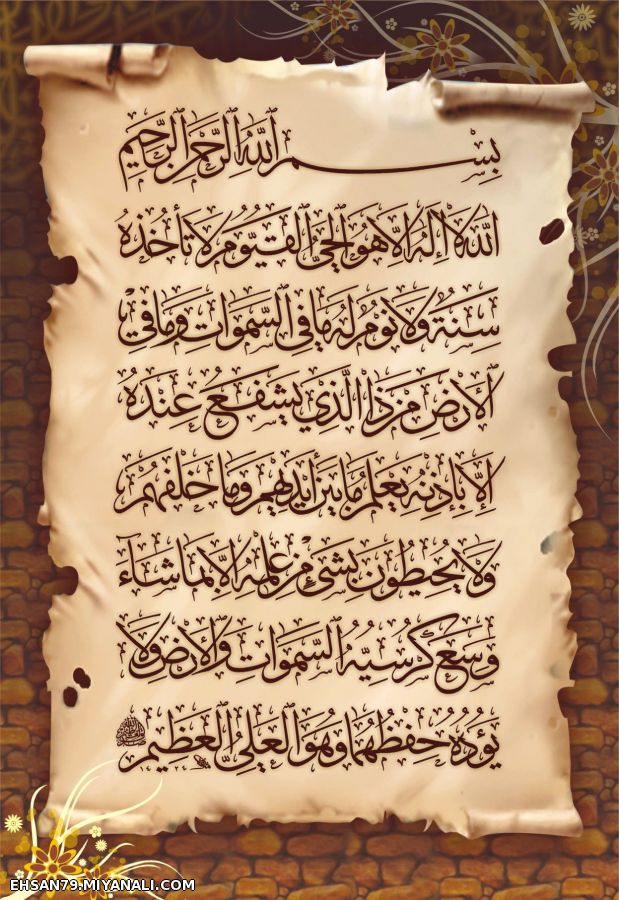 بِسْمِ ٱللَّهِ ٱلرَّحْمَٰنِ ٱلرَّحِيمِ
ٱللَّهُ لَا إِلَٰهَ إِلَّا هُوَ ٱلْحَيُّ ٱلْقَيُّومُ لَا تَأْخُذُهُ
سِنَةٌ وَلَا نَوْمٌ لَهُ مَا فِي ٱلسَّمَوَاتِ وَمَا فِي
ٱلْأَرْضِ مَنْ ذَا ٱلَّذِي يَشْفَعُ عِنْدَهُ
إِلَّا بِإِذْنِهِ يَعْلَمُ مَا بَيْنَ أَيْدِيهِمْ وَمَا خَلْفَهُمْ
وَلَا يُحِيطُونَ بِشَيْءٍ مِنْ عِلْمِهِ إِلَّا بِمَا شَاءَ
وَسِعَ كُرْسِيُّهُ ٱلسَّمَوَاتِ وَٱلْأَرْضَ وَلَا
يَؤُدُهُ حِفْظُهُمَا وَهُوَ ٱلْعَلِيُّ ٱلْعَظِيمُ
EHSAN79.MIYANALI.COM